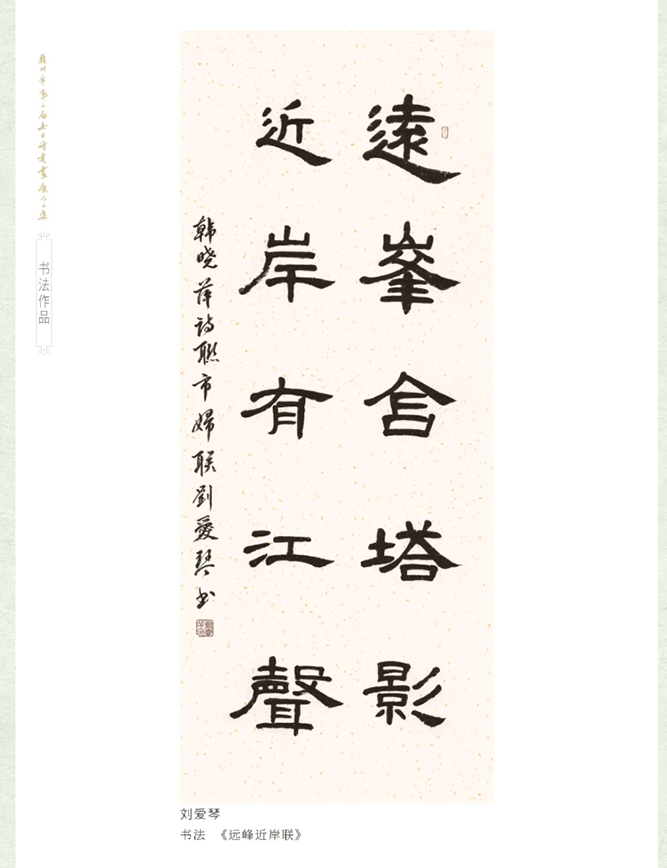 遠峯含塔影
近岸有江聲
韩晓萍诗聯市婦联劉愛琴书
书法作品
刘爱琴
书法 《远峰近岸联》